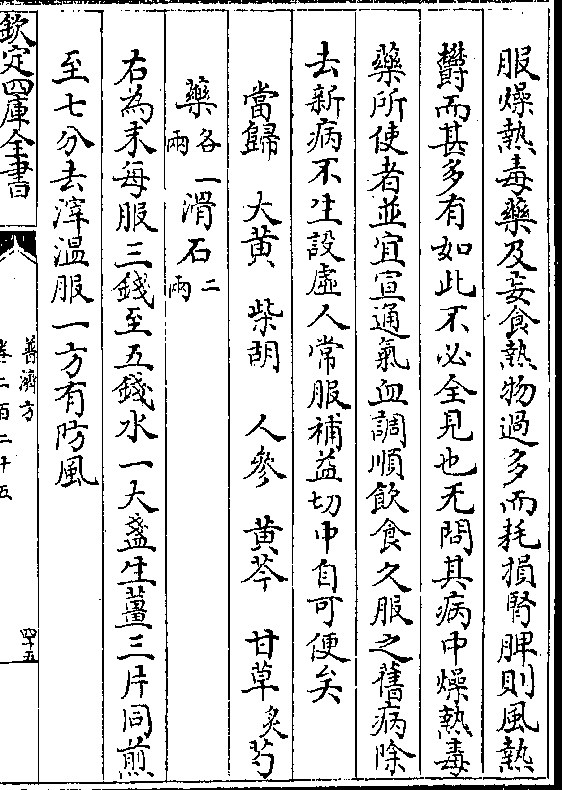 服燥熱毒藥及妄食熱物過多而耗損腎脾則風熱
欝而甚多有如此不必全見也无問其病中燥熱毒
藥所使者並宜宣通氣血調順飲食久服之舊病除
去新病不生設虛人常服補益切中自可便矣
當歸 大黃 柴胡 人參 黄芩 甘草炙 芍
藥各一兩 滑石二兩
右為末每服三錢至五錢水一大盞生薑三片同煎
至七分去滓温服一方有防風
欽定四庫全書
普濟方
卷二百二十五
四十五